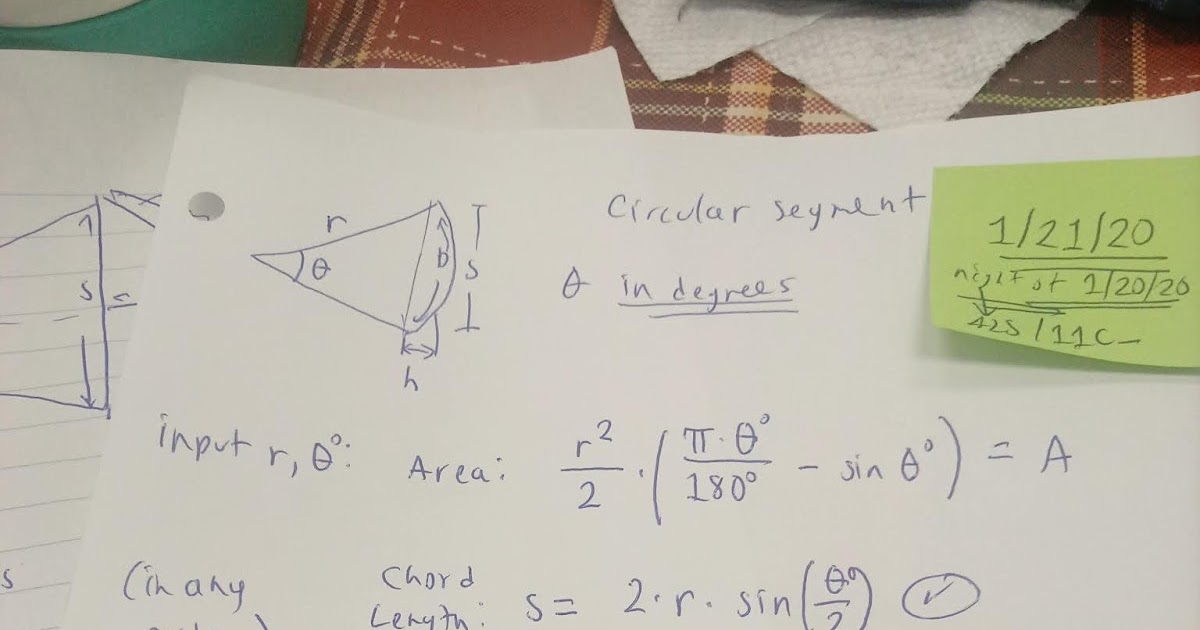 s
r
θ
b
s
h
Circular segment
θ in degrees
1/21/20
night of 1/20/20
42S/11C
input r, θ°:
Area: r²/2 · (π·θ°/180° - sin θ°) = A
s
(in any
Chord
Length: s = 2·r·sin(θ°/2) ✓